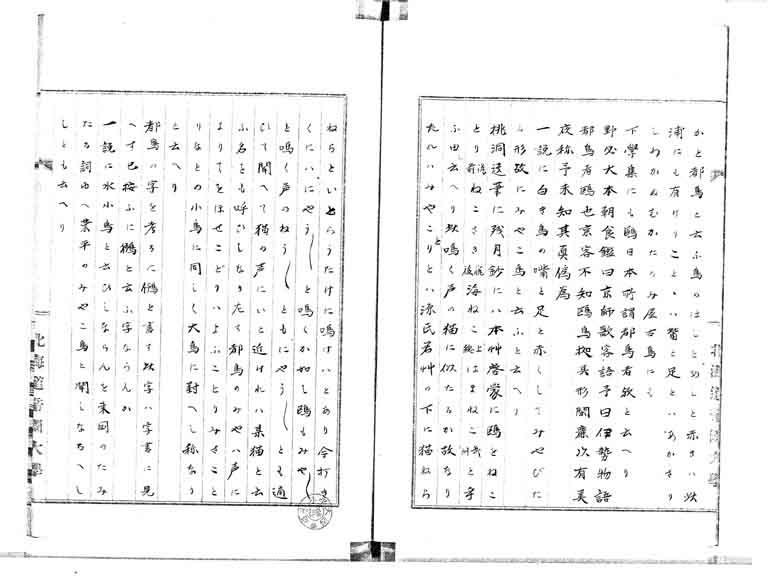 かと都鳥と云ふ鳥のはしとあしと赤きハ此
浦にも有けりことゝハ觜と足とハあかきり
しわかぬむかたのみ屋古鳥にも
下學集にも鷗日本所謂都鳥者歟と云へり
野必大本朝食鑑曰京師歌客語予曰伊勢物語
都鳥者鷗也京客不知鷗鳥拠其形閑麗以有美
夜称予未知其眞偽焉
一説に白き鳥の嘴と足と赤くしてみやびた
る形故にみやこ鳥と云ふと云へり
桃洞遺筆に残月鈔にハ本艸啓蒙に鷗をねこ
とりねこさき海ねこはまねこと
ふ由云へり此鳴く声の猫に似たるか故なり
たれハみやことりとハ源氏若艸の下に猫ねら
ねらといとらうたけに鳴けハとあり今打き
くにハにやう〳〵と鳴くか如し鷗もみや〳〵
と鳴く声のねう〳〵ともにやう〳〵とも通
ひて聞へて猫の声にいと近けれハ某猫と云
ふ名をも呼ひしなりたく都鳥のみやハ声に
よりてをほせことりハよふことりみさこと
りなとの小鳥に同しく大鳥に対へし称なり
と云へり
都鳥の字を考ろに鵂と書す此字ハ字書に見
へす已按ふに鵂と云ふ字ならんか
一説に水小鳥と云ひしならんを東国のたみ
たる詞ゆへ業平のみやこ鳥と聞しなるへし
しとも云へり
北海道帝國大學
北海道帝國大學